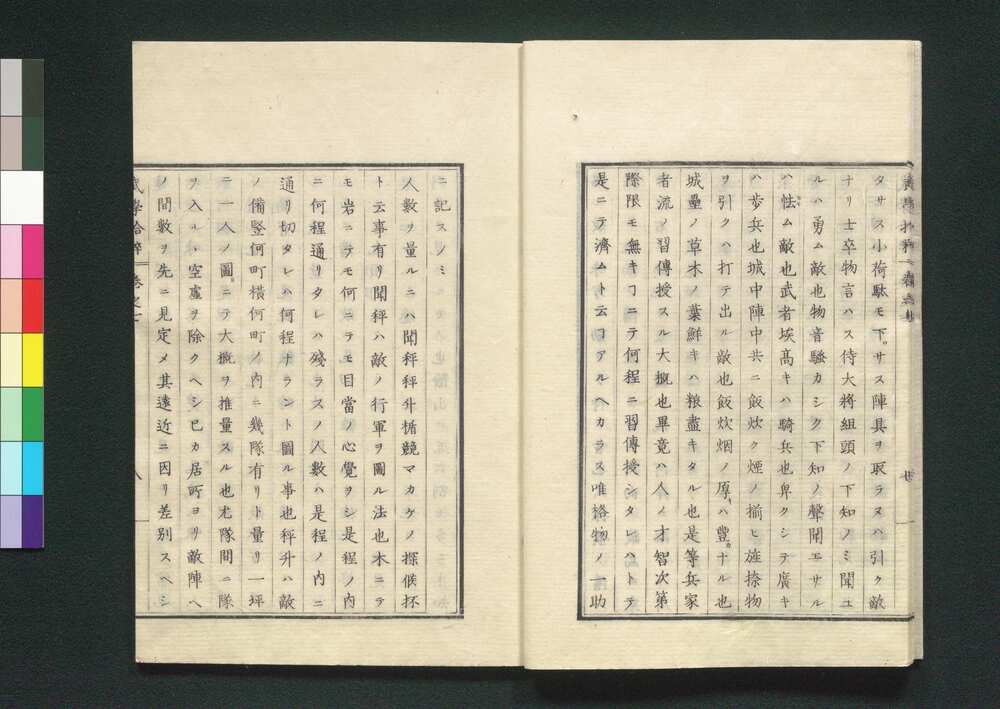 タサス小荷駄モ下サス陣具ヲ取ラヌハ引ク敵
ナリ士卒物言ハス侍大將組頭ノ下知ノミ聞ユ
ルハ勇ム敵也物音騷カシク下知ノ聲聞エサル
ハ怯ム敵也武者埃髙キハ騎兵也卑クシテ廣キ
ハ歩兵也城中陣中共ニ飯炊ク煙ノ揃ヒ旌捺物
ヲ引クハ打テ出ル敵也飯炊烟ノ厚ハ豊ナル也
城壘ノ草木ノ葉鮮キハ粮盡キタル也是等兵家
者流ノ習傳授スル大概也畢竟ハ人ノ才智次第
際限モ無キヿニテ何程ニ習傳授シタレハトテ
是ニテ濟ムト云ヿアルヘカラス唯格物ノ一助
ニ記スノミ
人數ヲ量ルニハ聞秤秤升楯競マカケノ探候抔
ト云事有リ聞秤ハ敵ノ行軍ヲ圖ル法也木ニテ
モ岩ニテモ何ニテモ目當ノ心覺ヲシ是程ノ内
ニ何程通リタレハ殘ラスノ人數ハ是程ノ内ニ
通リ切タレハ何程ナラント圖ル事也秤升ハ敵
ノ備竪何町橫何町ノ内ニ幾隊有リト量リ一坪
ニ一人ノ圖ニテ大概ヲ推量スル也尤隊間ニ隊
ヲ入ル丶空虛ヲ除クヘシ已カ居所ヨリ敵陣ヘ
ノ間數ヲ先ニ見定メ其遠近ニ因リ差別スヘシ
武學拾粹 卷之七
八